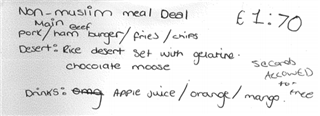 Non-muslim meal Deal £1:70
Main Beef
pork/ham burger/fries/chips
Desert: Rice desert set with gelatine.
chocolate moose
seconds
ALLOWED
to
free
Drinks: omg Apple juice/orange/mango.